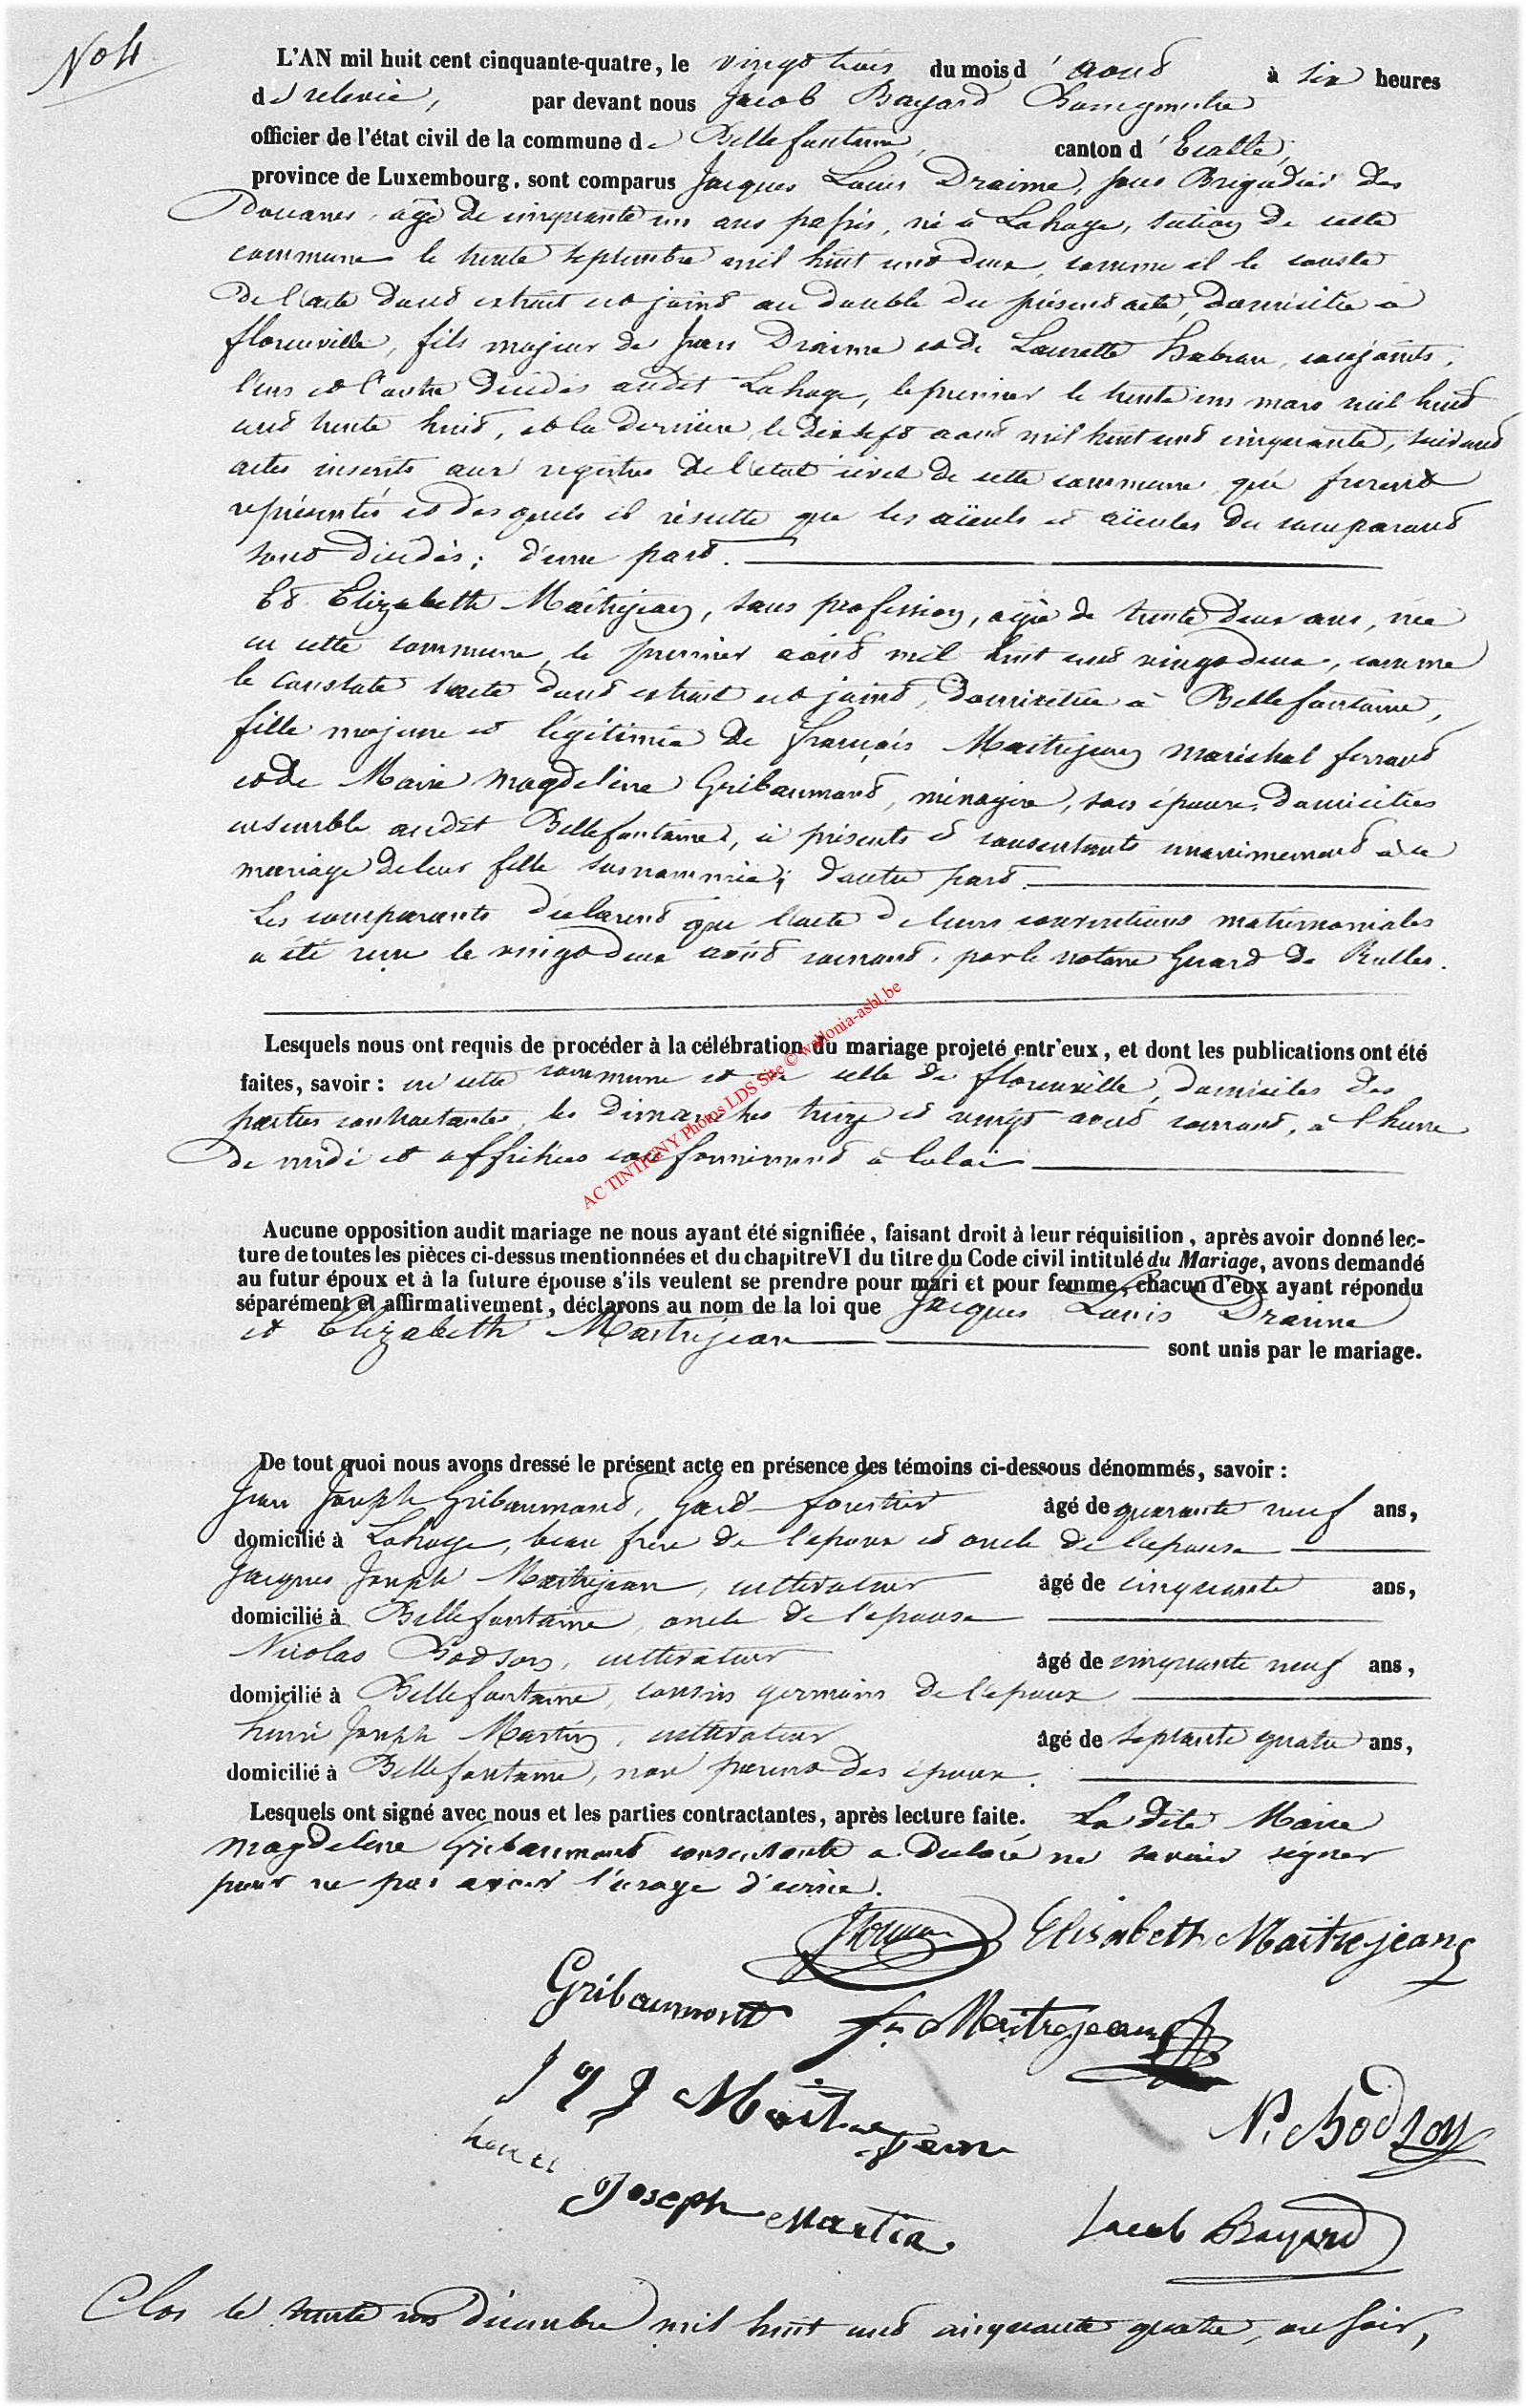 No 4
L'AN mil huit cent cinquante-quatre, le vingt trois du mois d'août à six heures
de relevée, par devant nous Jacob Bayard Bourgmestre
officier de l'état civil de la commune de Bellefontaine, canton d'Etalle,
province de Luxembourg, sont comparus Jacques Louis Draime, sous Brigadier des
Douanes, âgé de cinquante un ans passés, né à Lahage, section de cette
commune le trente septembre mil huit cent deux, comme il le conste
de l'acte dont extrait est joint au double du présent acte, domicilié à
florenville, fils majeur de Jean Draime et de Laurette habran, conjoints,
l'un et l'autre décédés audit Lahage, le premier le trente un mars mil huit
cent trente huit, et la dernière le dix sept août mil huit cent cinquante, suivant
actes inscrits aux registres de l'état civil de cette commune qui furent
représentés et des quels il résulte que les aïeuls et aïeules du comparant
sont décédés; d'une part.
Et Elizabeth Maitrejean, sans profession, agée de trente deux ans, née
en cette commune, le premier août mil huit cent vingt deux, comme
le constate l'acte dont extrait est joint, domiciliée à Bellefontaine,
fille majeure et légitimée de françois Maitrejean maréchal ferrant
et de Marie Magdeleine Gribaumont, ménagère, son épouse, domiciliés
ensemble audit Bellefontaine, ci présents et consentants unanimement à ce
mariage de leur fille surnommée; d'autre part.
Les comparants déclarent que l'acte de leurs conventions matrimoniales
a été reçu le vingt deux août courant, par le notaire Gerard de Rulles.
Lesquels nous ont requis de procéder à la célébration du mariage projeté entr'eux, et dont les publications ont été
faites, savoir : en cette commune et en celle de florenville, domiciles des
parties contractantes, les dimanches treize et vingt août courant, à l'heure
de midi et affichées conformément à la loi
Aucune opposition audit mariage ne nous ayant été signifiée, faisant droit à leur réquisition, après avoir donné lec-
ture de toutes les pièces ci-dessus mentionnées et du chapitre VI du titre du Code civil intitulé du Mariage, avons demandé
au futur époux et à la future épouse s'ils veulent se prendre pour mari et pour femme, chacun d'eux ayant répondu
séparément et affirmativement, déclarons au nom de la loi que Jacques Louis Draime
et Elizabeth Maitrejean sont unis par le mariage.
De tout quoi nous avons dressé le présent acte en présence des témoins ci-dessous dénommés, savoir :
Jean Joseph Gribaumont, Garde forestier âgé de quarante neuf ans,
domicilié à Lahage, beau frère de l'époux et oncle de l'épouse
Jacques Joseph Maitrejean, cultivateur âgé de cinquante ans,
domicilié à Bellefontaine, oncle de l'épouse
Nicolas Bodson, cultivateur âgé de cinquante neuf ans,
domicilié à Bellefontaine, cousin germain de l'époux
henri Joseph Martin, cultivateur âgé de septante quatre ans,
domicilié à Bellefontaine, non parent des époux.
Lesquels ont signé avec nous et les parties contractantes, après lecture faite. La dite Marie
Magdeleine Gribaumont consentante a déclaré ne savoir signer
pour ne pas avoir l'usage d'écrire.
Elisabeth Maitrejean
Gribaumont
Maitrejean
J J Maitrejean
N. Bodson
henri Joseph Martin
Jacob Bayard
Clos le trente un décembre mil huit cent cinquante quatre, au soir,
AC TINTIGNY Photos LDS Site © wallonia-asbl.be